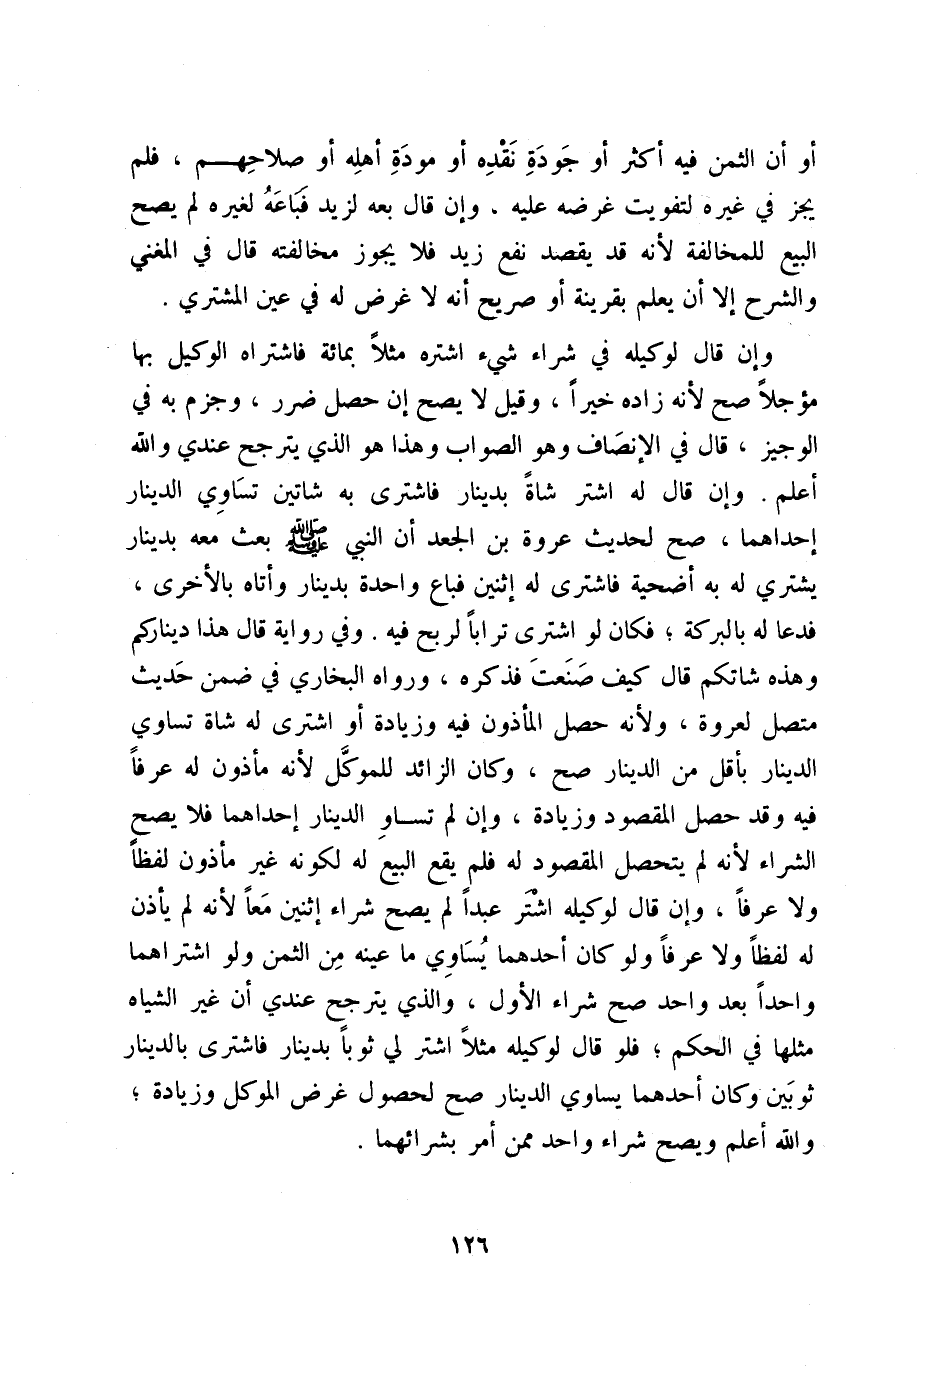 أو أن الثمن فيه أكثر أو جَودَةِ نَقْدِه أو مودَةِ أهلِه أو صلاحِهِم ، فلم
يجز في غيره لتفويت غرضه عليه . وإن قال بعه لزيد فَبَاعَهُ لغيره لم يصح
البيع للمخالفة لأنه قد يقصد نفع زيد فلا يجوز مخالفته قال في المغني
والشرح إلا أن يعلم بقرينة أو صريح أنه لا غرض له في عين المشتري .
وإن قال لوكيله في شراء شيء اشتره مثلاً بمائة فاشتراه الوكيل بها
مؤجلاً صح لأنه زاده خيراً ، وقيل لا يصح إن حصل ضرر ، وجزم به في
الوجيز ، قال في الإنصَاف وهو الصواب وهذا هو الذي يترجح عندي والله
أعلم . وإن قال له اشتر شاةً بدينار فاشترى به شاتين تسَاوِي الدينار
إحداهما ، صح لحديث عروة بن الجعد أن النبي ﷺ بعث معه بدينار
يشتري له به أضحية فاشترى له إثنين فباع واحدة بدينار وأتاه بالأخرى ،
فدعا له بالبركة ؛ فكان لو اشترى تراباً لربح فيه . وفي رواية قال هذا ديناركم
وهذه شاتكم قال كيف صَنَعتَ فذكره ، ورواه البخاري في ضمن حَديث
متصل لعروة ، ولأنه حصل المأذون فيه وزيادة أو اشترى له شاة تساوي
الدينار بأقل من الدينار صح ، وكان الزائد للموكَّل لأنه مأذون له عرفاً
فيه وقد حصل المقصود وزيادة ، وإن لم تساوِ الدينار إحداهما فلا يصح
الشراء لأنه لم يتحصل المقصود له فلم يقع البيع له لكونه غير مأذون لفظاً
ولا عرفاً ، وإن قال لوكيله اشْتَر عبداً لم يصح شراء إثنين مَعاً لأنه لم يأذن
له لفظاً ولا عرفاً ولو كان أحدهما يُسَاوِي ما عينه مِن الثمن ولو اشتراهما
واحداً بعد واحد صح شراء الأول ، والذي يترجح عندي أن غير الشياه
مثلها في الحكم ؛ فلو قال لوكيله مثلاً اشتر لي ثوباً بدينار فاشترى بالدينار
ثوبَين وكان أحدهما يساوي الدينار صح لحصول غرض الموكل وزيادة ؛
والله أعلم ويصح شراء واحد ممن أمر بشرائهما .
١٢٦